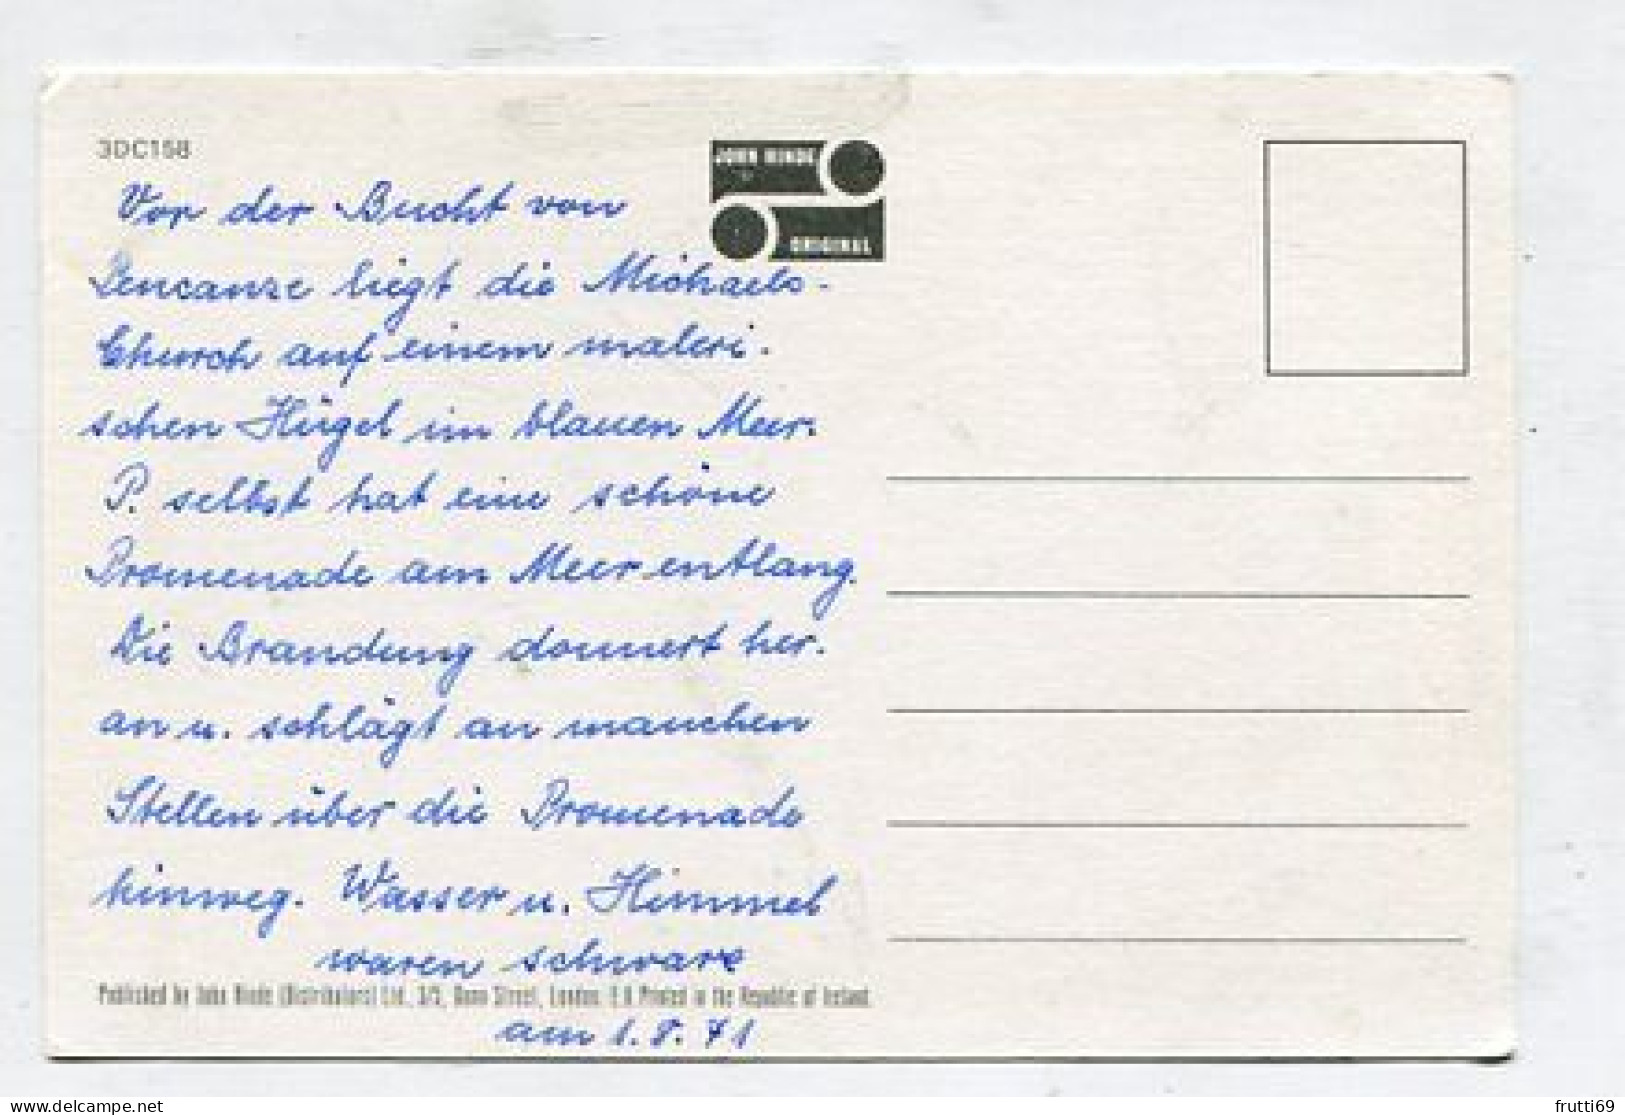 3DC158
JOHN HINDE
ORIGINAL
Vor der Bucht von
Pencanze liegt die Michaels-
Church auf einem maleri-
schen Hügel im blauen Meer.
P. selbst hat eine schöne
Promenade am Meer entlang.
Die Brandung donnert her-
an u. schlägt an manchen
Stellen über die Promenade
hinweg. Wasser u. Himmel
waren schwarz
Published by John Hinde (Distributors) Ltd., Street, London, Printed in the Republic of Ireland.
am 1.8.71
delcampe.net
frutti69